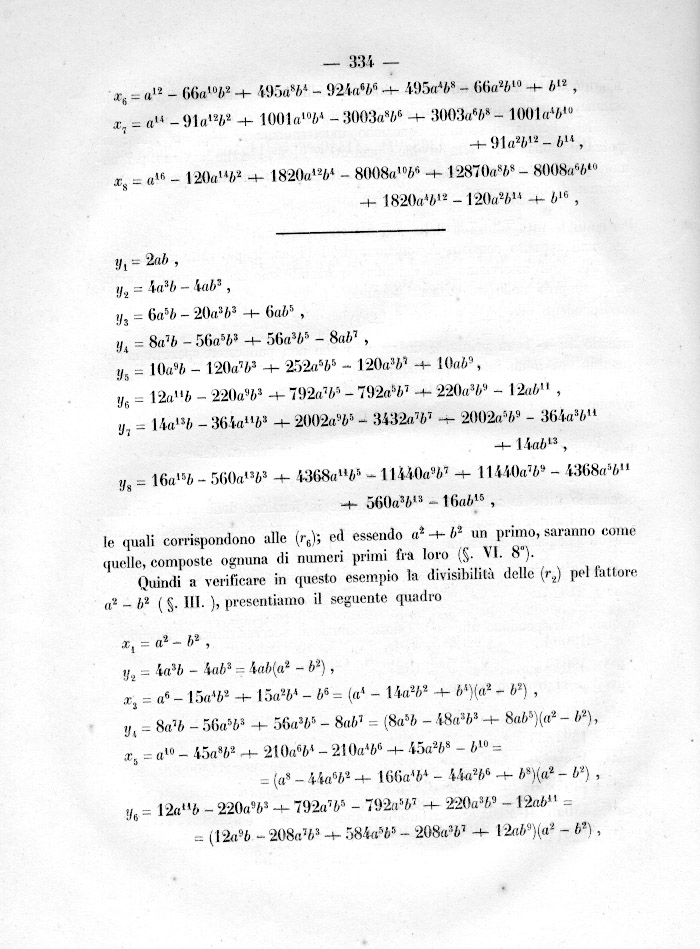 — 334 —
x₆ = a¹² – 66a¹⁰b² + 495a⁸b⁴ – 924a⁶b⁶ + 495a⁴b⁸ – 66a²b¹⁰ + b¹² ,
x₇ = a¹⁴ – 91a¹²b² + 1001a¹⁰b⁴ – 3003a⁸b⁶ + 3003a⁶b⁸ – 1001a⁴b¹⁰
+ 91a²b¹² – b¹⁴ ,
x₈ = a¹⁶ – 120a¹⁴b² + 1820a¹²b⁴ – 8008a¹⁰b⁶ + 12870a⁸b⁸ – 8008a⁶b¹⁰
+ 1820a⁴b¹² – 120a²b¹⁴ + b¹⁶ ,
y₁ = 2ab ,
y₂ = 4a³b – 4ab³ ,
y₃ = 6a⁵b – 20a³b³ + 6ab⁵ ,
y₄ = 8a⁷b – 56a⁵b³ + 56a³b⁵ – 8ab⁷ ,
y₅ = 10a⁹b – 120a⁷b³ + 252a⁵b⁵ – 120a³b⁷ + 10ab⁹ ,
y₆ = 12a¹¹b – 220a⁹b³ + 792a⁷b⁵ – 792a⁵b⁷ + 220a³b⁹ – 12ab¹¹ ,
y₇ = 14a¹³b – 364a¹¹b³ + 2002a⁹b⁵ – 3432a⁷b⁷ + 2002a⁵b⁹ – 364a³b¹¹
+ 14ab¹³ ,
y₈ = 16a¹⁵b – 560a¹³b³ + 4368a¹¹b⁵ – 11440a⁹b⁷ + 11440a⁷b⁹ – 4368a⁵b¹¹
+ 560a³b¹³ – 16ab¹⁵ ,
le quali corrispondono alle (r₆); ed essendo a² + b² un primo, saranno come
quelle, composte ognuna di numeri primi fra loro (§. VI. 8º).
Quindi a verificare in questo esempio la divisibilità delle (r₂) pel fattore
a² – b² ( §. III. ), presentiamo il seguente quadro
x₁ = a² – b² ,
y₂ = 4a³b – 4ab³ = 4ab(a² – b²) ,
x₃ = a⁶ – 15a⁴b² + 15a²b⁴ – b⁶ = (a⁴ – 14a²b² + b⁴)(a² – b²) ,
y₄ = 8a⁷b – 56a⁵b³ + 56a³b⁵ – 8ab⁷ = (8a⁵b – 48a³b³ + 8ab⁵)(a² – b²),
x₅ = a¹⁰ – 45a⁸b² + 210a⁶b⁴ – 210a⁴b⁶ + 45a²b⁸ – b¹⁰ =
= (a⁸ – 44a⁶b² + 166a⁴b⁴ – 44a²b⁶ + b⁸)(a² – b²) ,
y₆ = 12a¹¹b – 220a⁹b³ + 792a⁷b⁵ – 792a⁵b⁷ + 220a³b⁹ – 12ab¹¹ =
= (12a⁹b – 208a⁷b³ + 584a⁵b⁵ – 208a³b⁷ + 12ab⁹)(a² – b²) ,